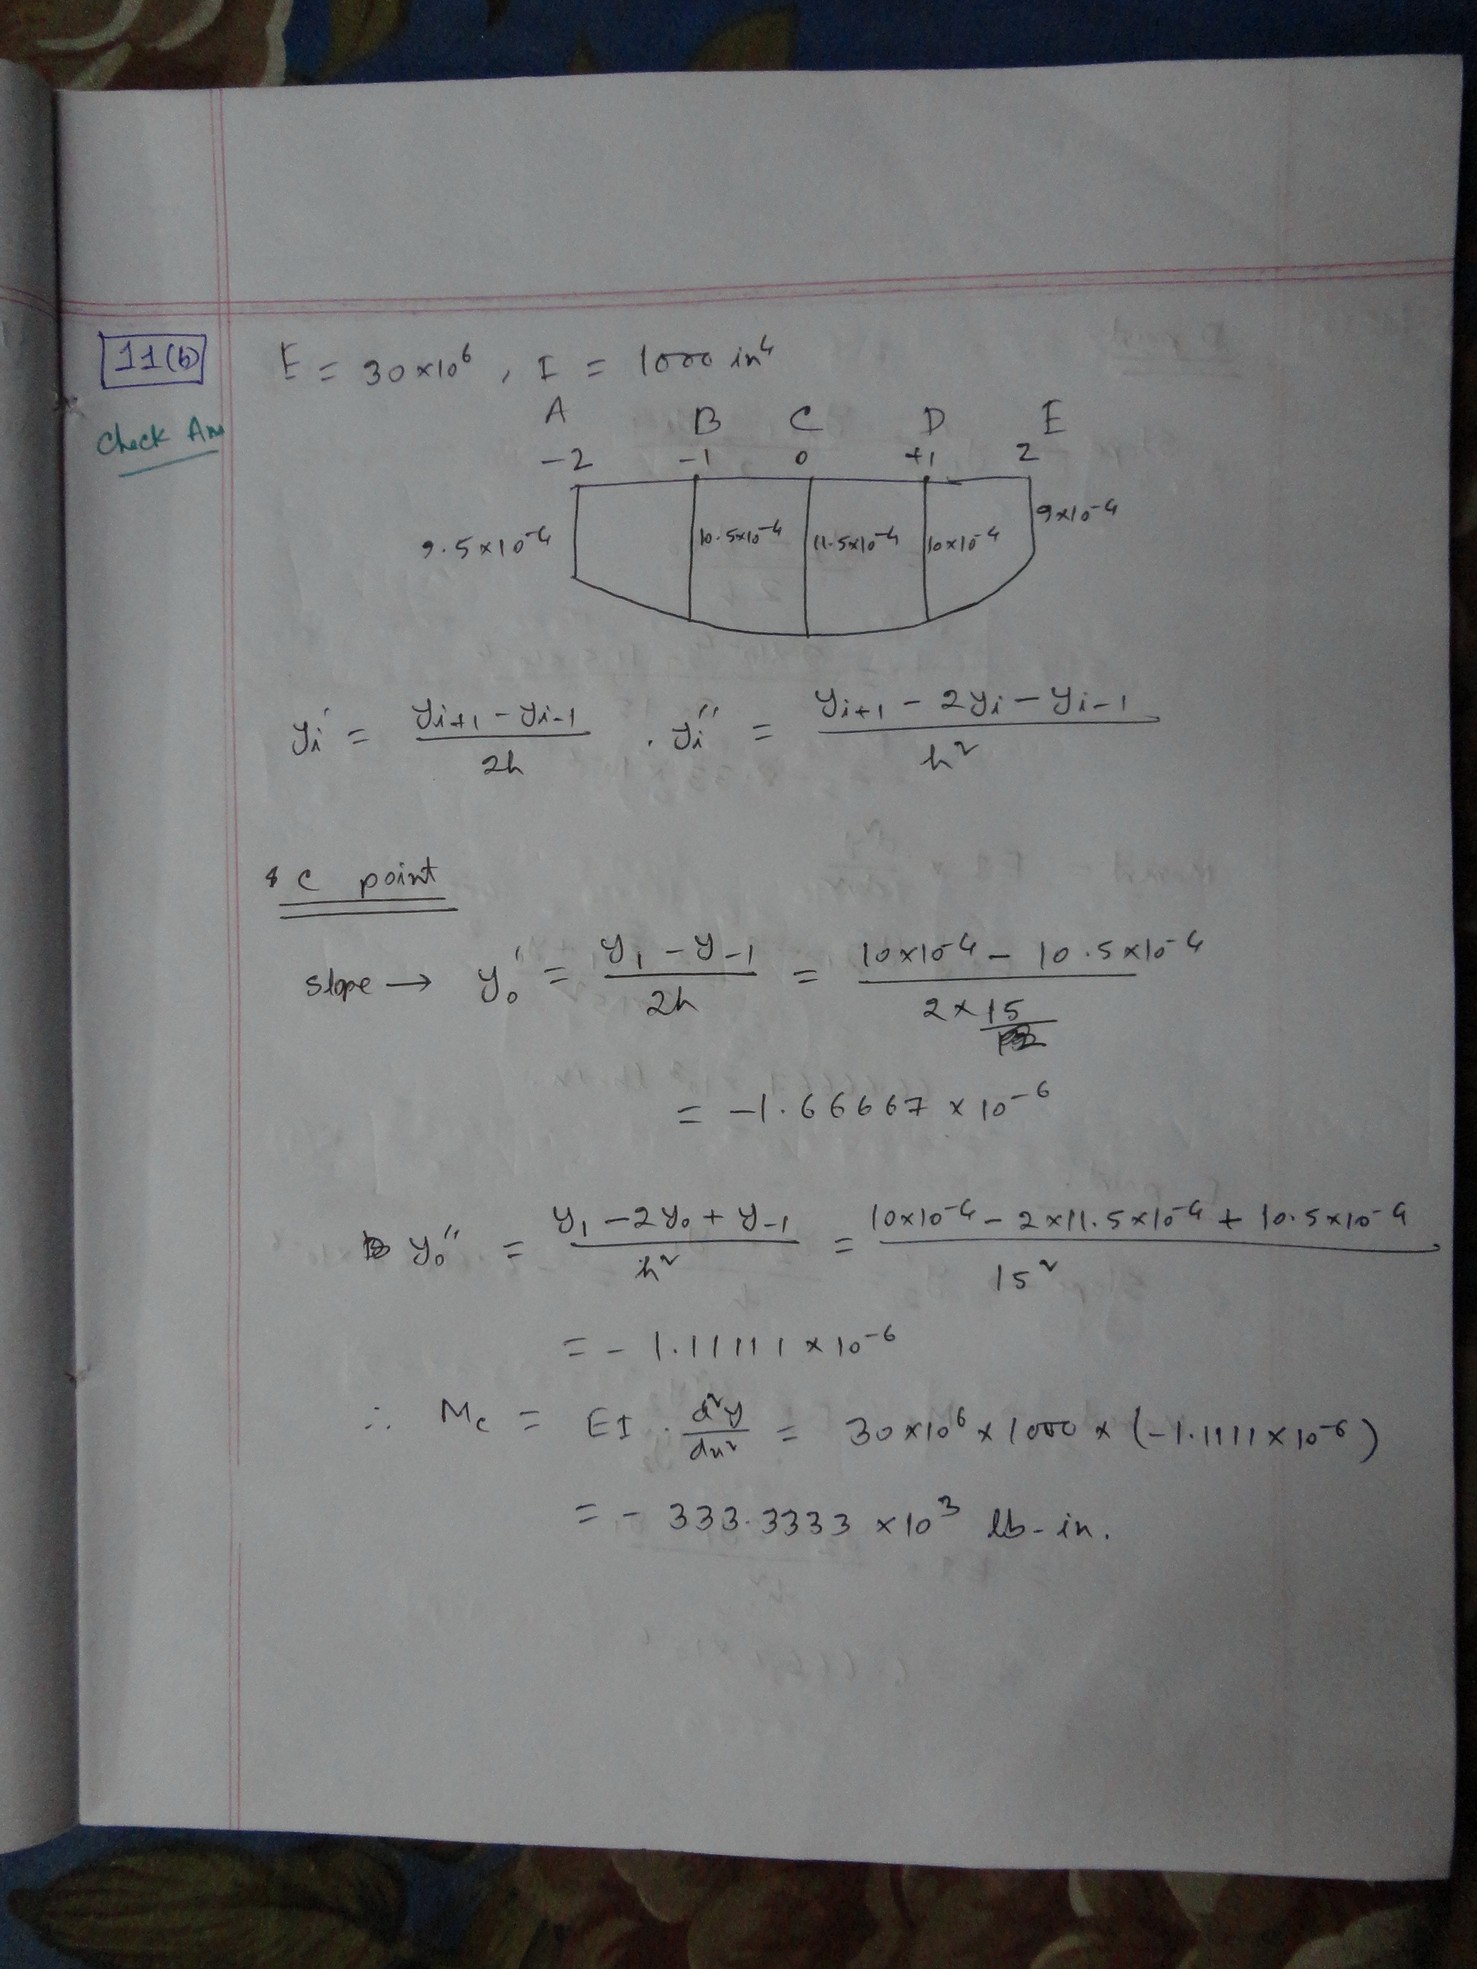 11(b)
E = 30×10⁶ , I = 1000 in⁴
Check Ans
A B C D E
-2 -1 0 +1 2
9.5×10⁻⁴ 10.5×10⁻⁴ 11.5×10⁻⁴ 10×10⁻⁴ 9×10⁻⁴
yi' = (yi+1 - yi-1) / 2h . yi'' = (yi+1 - 2yi - yi-1) / h²
C point
slope → y₀' = (y₁ - y-1) / 2h = (10×10⁻⁴ - 10.5×10⁻⁴) / (2×15)
= -1.66667 × 10⁻⁶
y₀'' = (y₁ - 2y₀ + y-1) / h² = (10×10⁻⁴ - 2×11.5×10⁻⁴ + 10.5×10⁻⁴) / 15²
= - 1.11111 × 10⁻⁶
∴ Mc = EI . d²y/dx² = 30×10⁶ × 1000 × (-1.1111×10⁻⁶)
= - 333.3333 ×10³ lb-in.